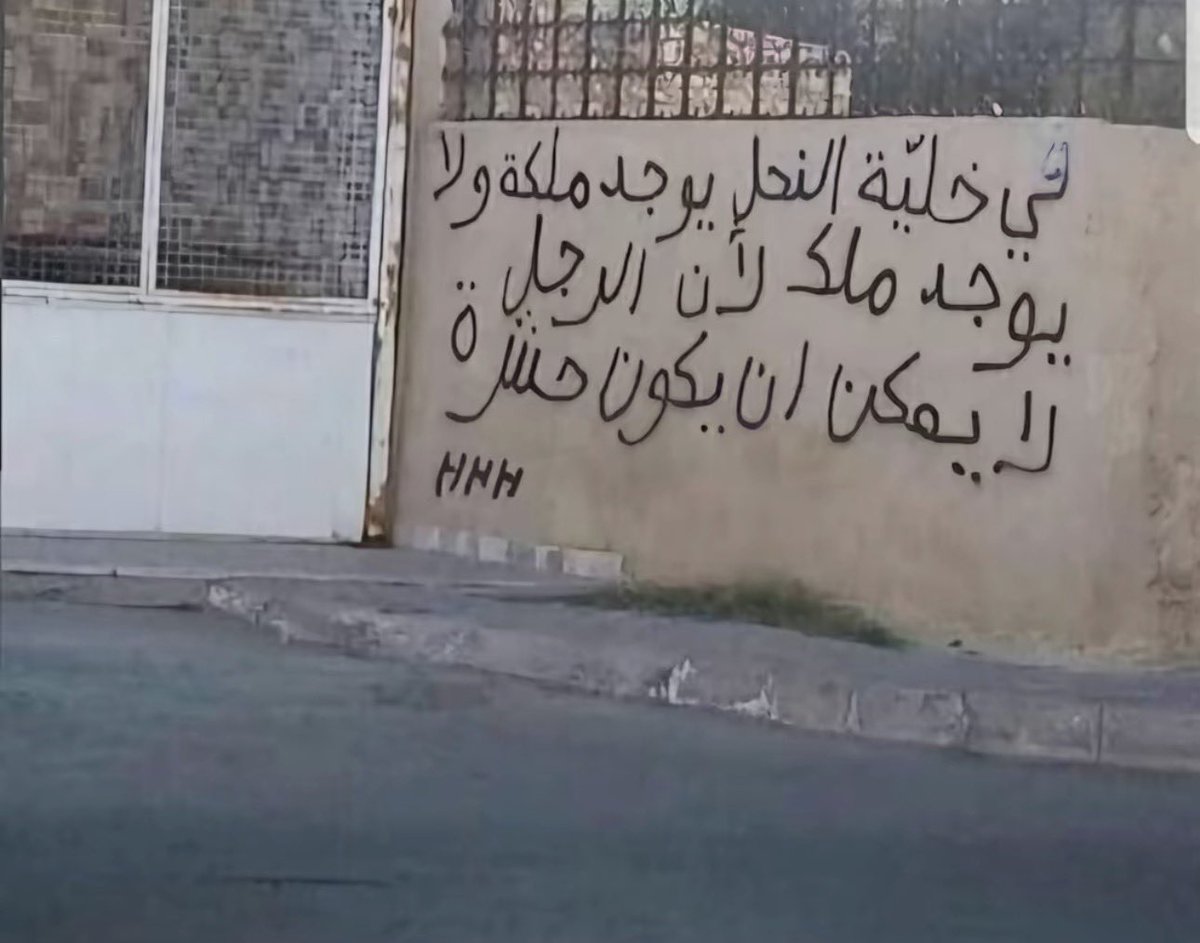 في خليّة النحل يوجد ملكة ولا
يوجد ملك لأن الرجل
لا يمكن ان يكون حشرة
HHH